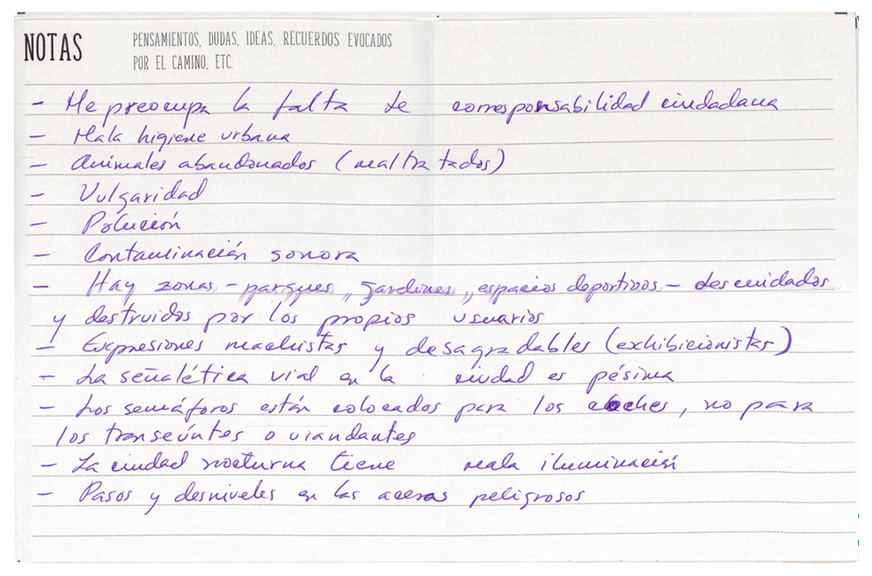 NOTAS
PENSAMIENTOS, DUDAS, IDEAS, RECUERDOS EVOCADOS
POR EL CAMINO, ETC.
- Me preocupa la falta de corresponsabilidad ciudadana
- Mala higiene urbana
- Animales abandonados (maltratados)
- Vulgaridad
- Polución
- Contaminación sonora
- Hay zonas - parques, jardines, espacios deportivos - descuidados
y destruidos por los propios usuarios
- Expresiones machistas y desagradables (exhibicionistas)
- La señalética vial en la ciudad es pésima
- Los semáforos están colocados para los coches, no para
los transeúntes o viandantes
- La ciudad nocturna tiene mala iluminación
- Pasos y desniveles en las aceras peligrosos